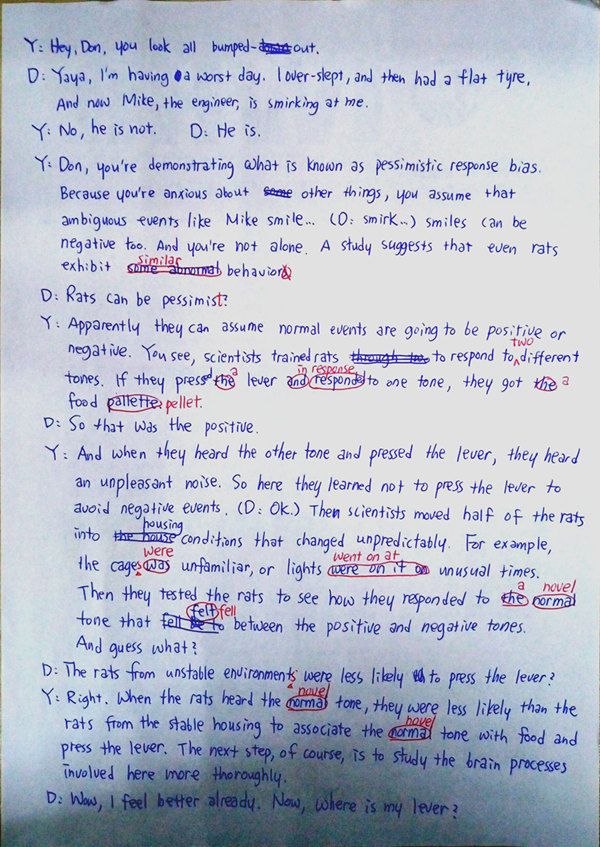 Y: Hey, Don, you look all bumped-out.
D: Yaya, I'm having a worst day. I over-slept, and then had a flat tyre,
And now Mike, the engineer, is smirking at me.
Y: No, he is not. D: He is.
Y: Don, you're demonstrating what is known as pessimistic response bias.
Because you're anxious about some other things, you assume that
ambiguous events like Mike smile... (D: smirk...) smiles can be
negative too. And you're not alone. A study suggests that even rats
similar
exhibit some abnormal behaviors
D: Rats can be pessimist?
Y: Apparently they can assume normal events are going to be positive or
two
negative. You see, scientists trained rats through to to respond to different
a in response
tones. If they pressed the lever and responded to one tone, they got the a
food pallette? pellet.
D: So that was the positive.
Y: And when they heard the other tone and pressed the lever, they heard
an unpleasant noise. So here they learned not to press the lever to
avoid negative events. (D: OK.) Then scientists moved half of the rats
housing
into the house conditions that changed unpredictably. For example,
were went on at
the cages was unfamiliar, or lights were on it on unusual times.
a novel
Then they tested the rats to see how they responded to the normal
felt fell
tone that fell be to between the positive and negative tones.
And guess what?
D: The rats from unstable environments were less likely to press the lever?
novel
Y: Right. When the rats heard the normal tone, they were less likely than the
novel
rats from the stable housing to associate the normal tone with food and
press the lever. The next step, of course, is to study the brain processes
involved here more thoroughly.
D: Wow, I feel better already. Now, where is my lever?